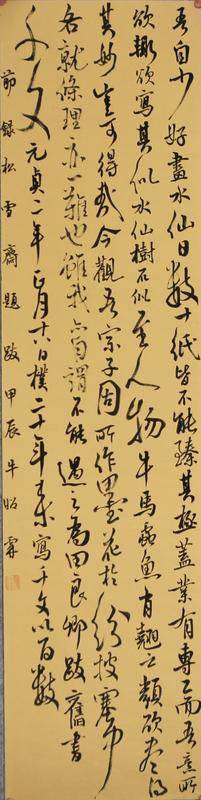 吾自少好畫水仙日數十紙皆不能臻其極蓋業有專工而吾意所
欲輒欲寫其似水仙樹石似至人物牛馬蟲魚肖翹之類欲盡得
其妙豈可得哉今觀吾宗子固所作墨花於紛披塞中
各就條理亦一難也雖我亦自謂不能過之為田良卿跋舊書
千文元貞二年正月十八日樸二十年來寫千文以百數
節錄松雪齋題跋甲辰牛霖